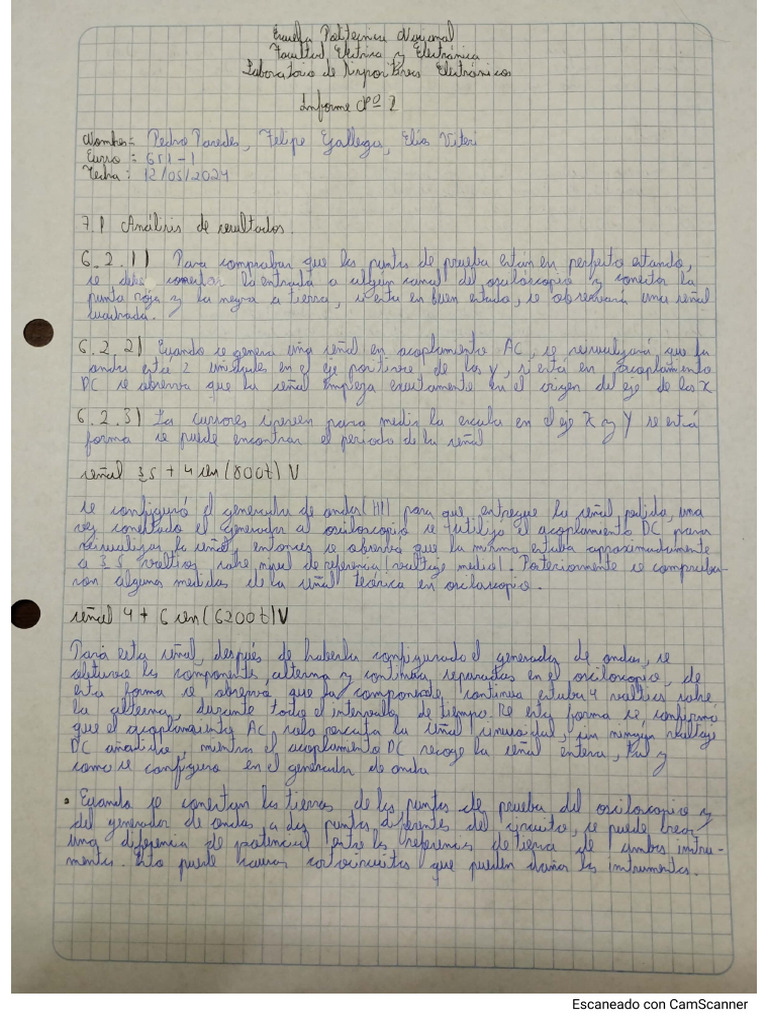 Escuela Politécnica Nacional
Facultad Eléctrica y Electrónica
Laboratorio de Dispositivos Electrónicos
Informe Nº 2
Nombres= Pedro Paredes, Felipe Gallegos, Elias Viteri
Curso : GR1-1
Fecha : 12/05/2024
7.1 Análisis de resultados.
6.2.1) Para comprobar que las puntas de prueba estan en perfecto estando,
se debe conectar la entrada a algún canal del osciloscopio y conectar la
punta roja y la negra a tierra, si esta en buen estado, se observará una señal
cuadrada.
6.2.2) Cuando se genera una señal en acoplamento AC, se visualizará que la
onda está 2 unidades en el eje positivo de las y, si está en acoplamento
DC se observa que la señal empieza exactamente en el origen del eje de las x
6.2.3) Los cursores sirven para medir la escala en el eje X y Y se está
forma se puede encontrar el periodo de la señal
señal 3.5 + 4 sen (800t) V
se configuró el generador de ondas para que entregue la señal pedida, una
vez conectado el generador al osciloscopio se utilizó el acoplamiento DC para
visualizar la señal, entonces se observa que la misma estaba aproximadamente
a 3.5 voltios sobre nivel de referencia (voltaje medio). Posteriormente se comproba-
ron algunas medidas de la señal teórica en osciloscopio.
señal 4 + 6 sen (6200t) V
Para esta señal, después de haberla configurado el generador de ondas, se
obtuvo las componentes alterna y continua separadas en el osciloscopio, de
esta forma se observa que la componente continua estaba 4 voltios sobre
la alterna, durante todo el intervalo de tiempo. De esta forma se confirmó
que el acoplamiento AC solo la señal sinusoidal, sin ningún voltaje
DC añadido, mientras el acoplamento DC recoge la señal entera, tal y
como se configuro en el generador de onda
• Cuando se conectan las tierras de las puntas de prueba del osciloscopio y
del generador de ondas, a dos puntos diferentes del circuito, se puede crear
una diferencia de potencial entre las referencias de tierra de ambos instru-
mentos. Esto puede causar cortocircuitos que pueden dañar los instrumentos.
Escaneado con CamScanner